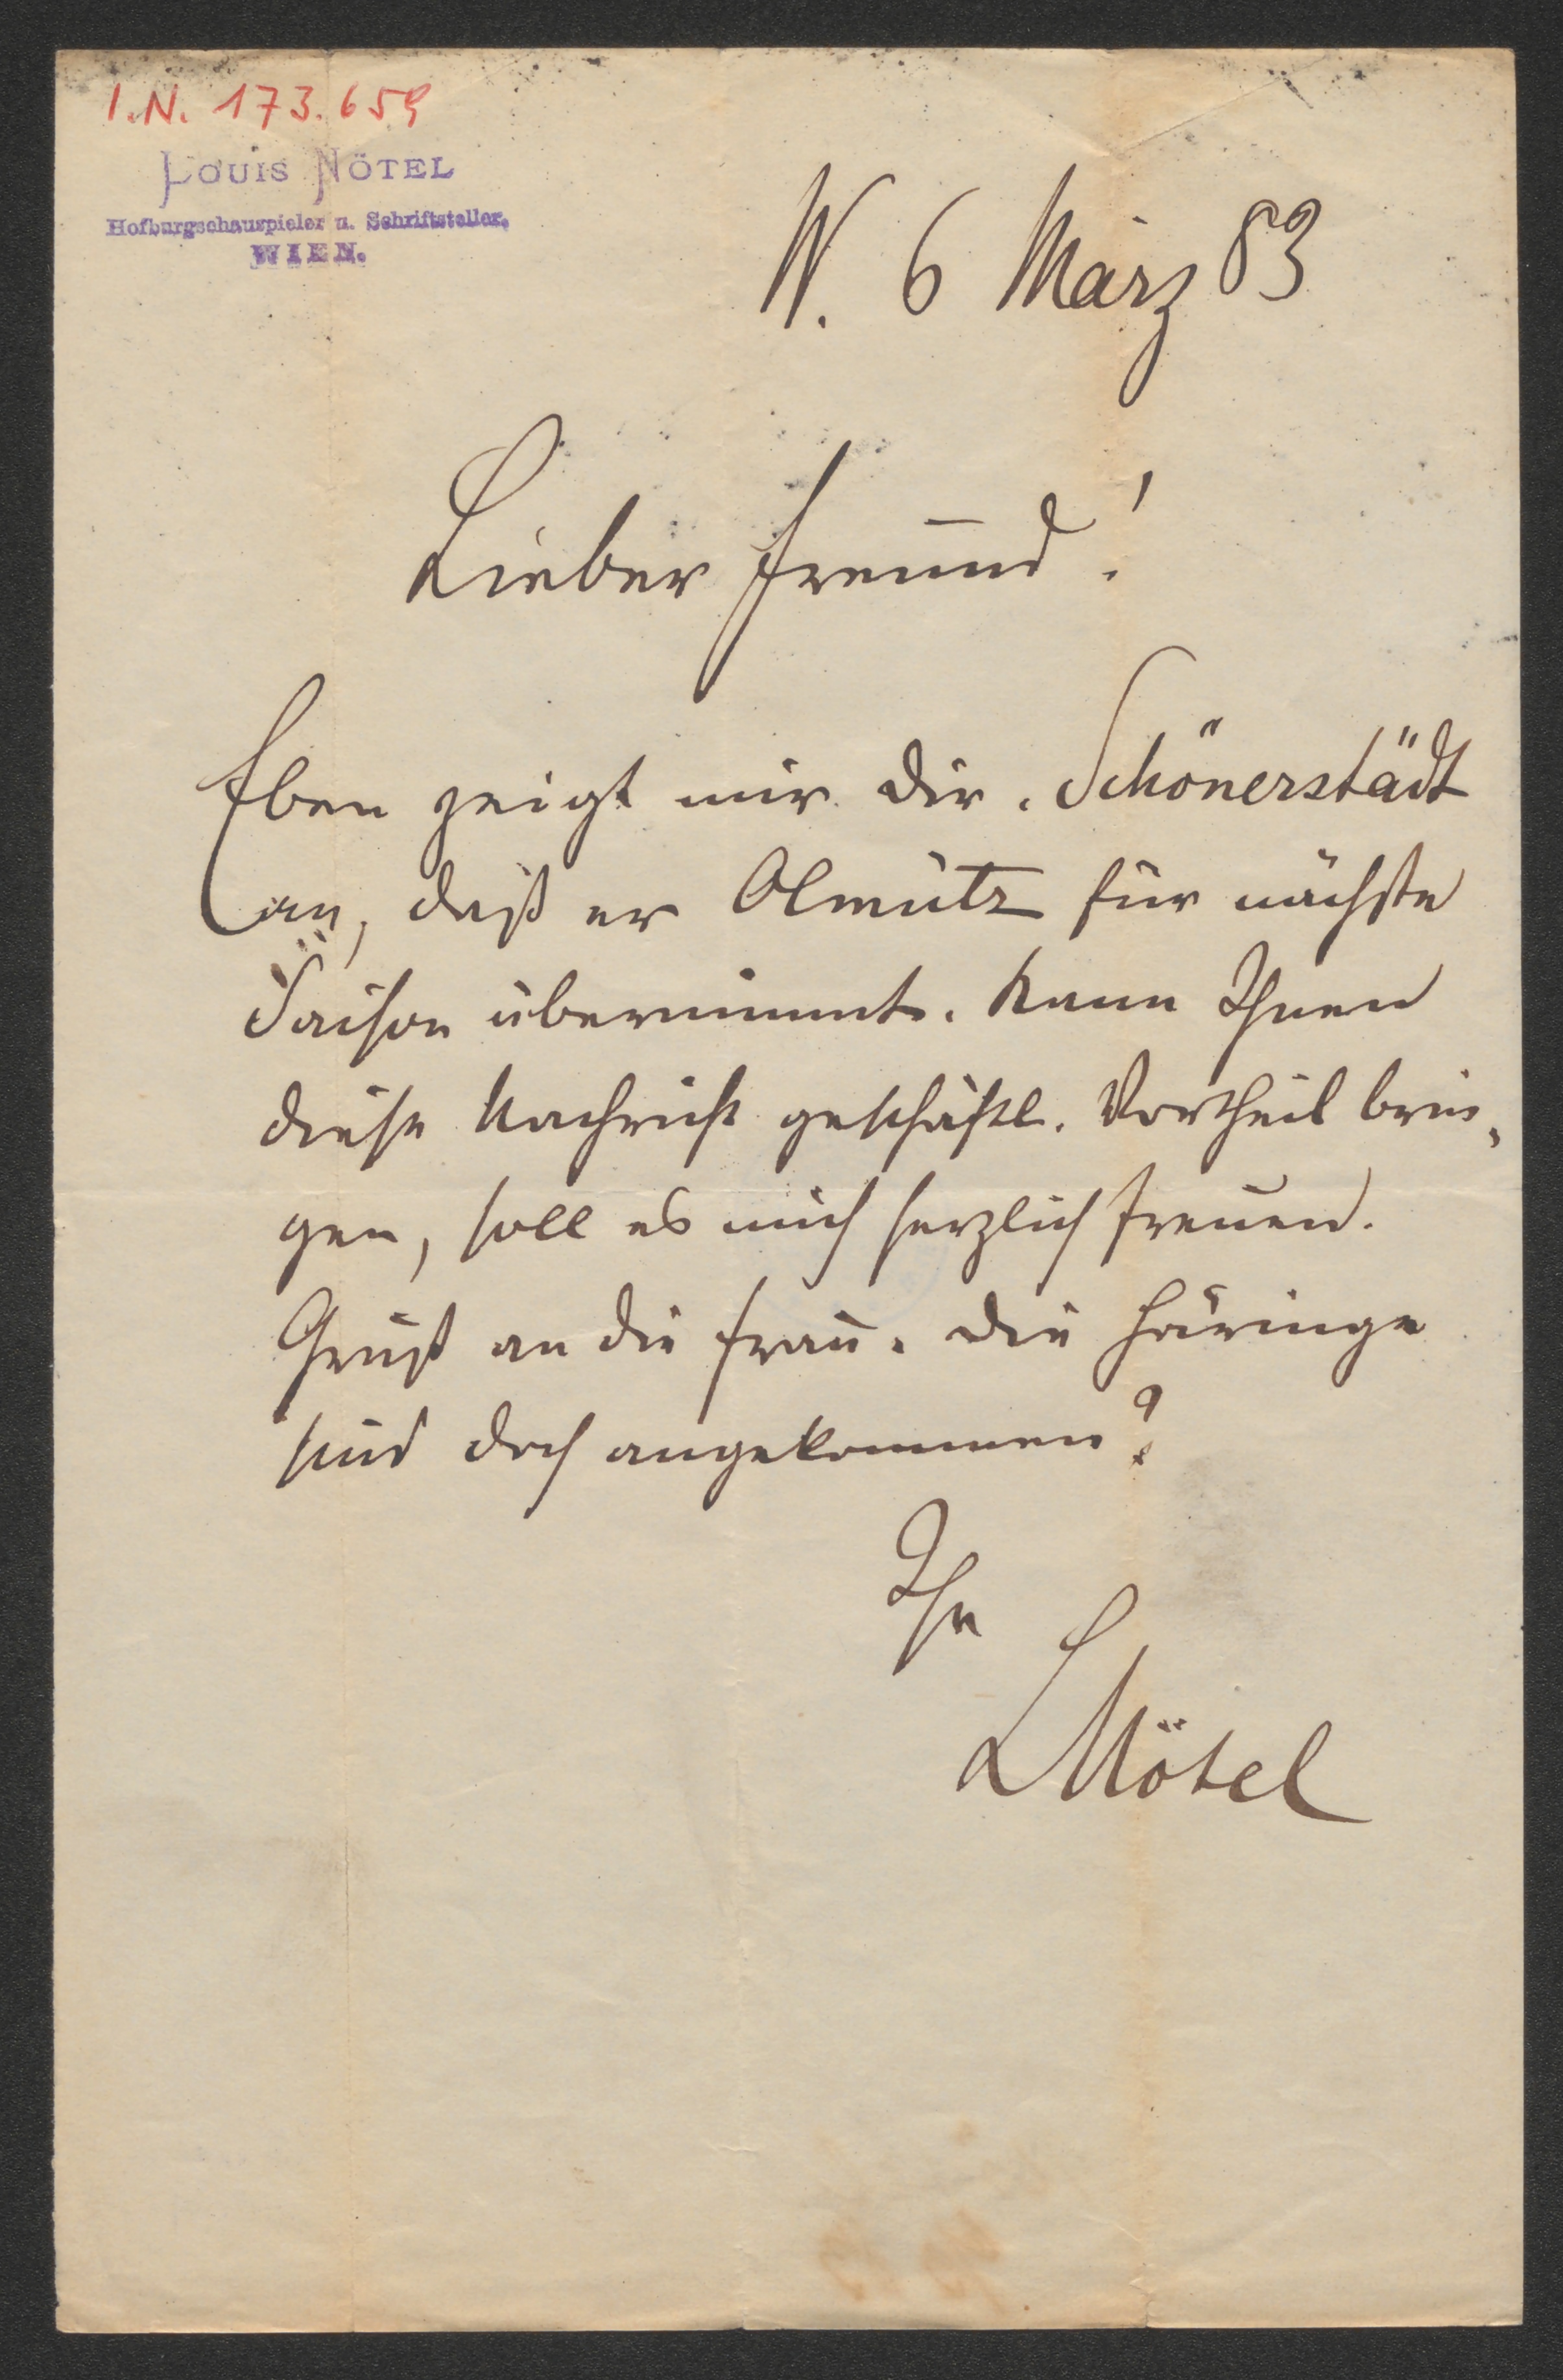 I.N. 173.659
LOUIS NÖTEL
Hofburgschauspieler u. Schriftsteller.
WIEN.
W. 6 März 83
Lieber Freund!
Eben zeigt mir Dir. Schönerstädt
an, daß er Olmütz für nächste
Saison übernimmt. Kann Ihnen
diese Nachricht geschäftl. Vortheil brin-
gen, soll es mich herzlich freuen.
Gruß an die Frau. Die Häringe
sind doch angekommen?
Ihr
LNötel